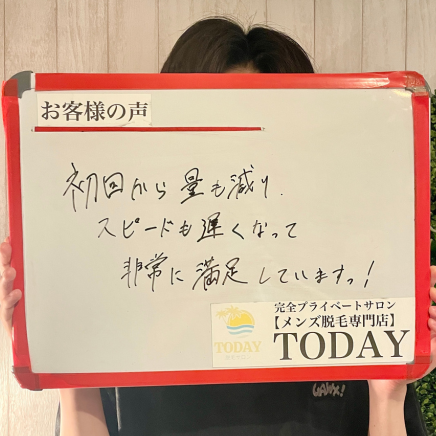 お客様の声
初回から量も減り、
スピードも遅くなって
非常に満足していますっ!
完全プライベートサロン
【メンズ脱毛専門店】
TODAY
TODAY